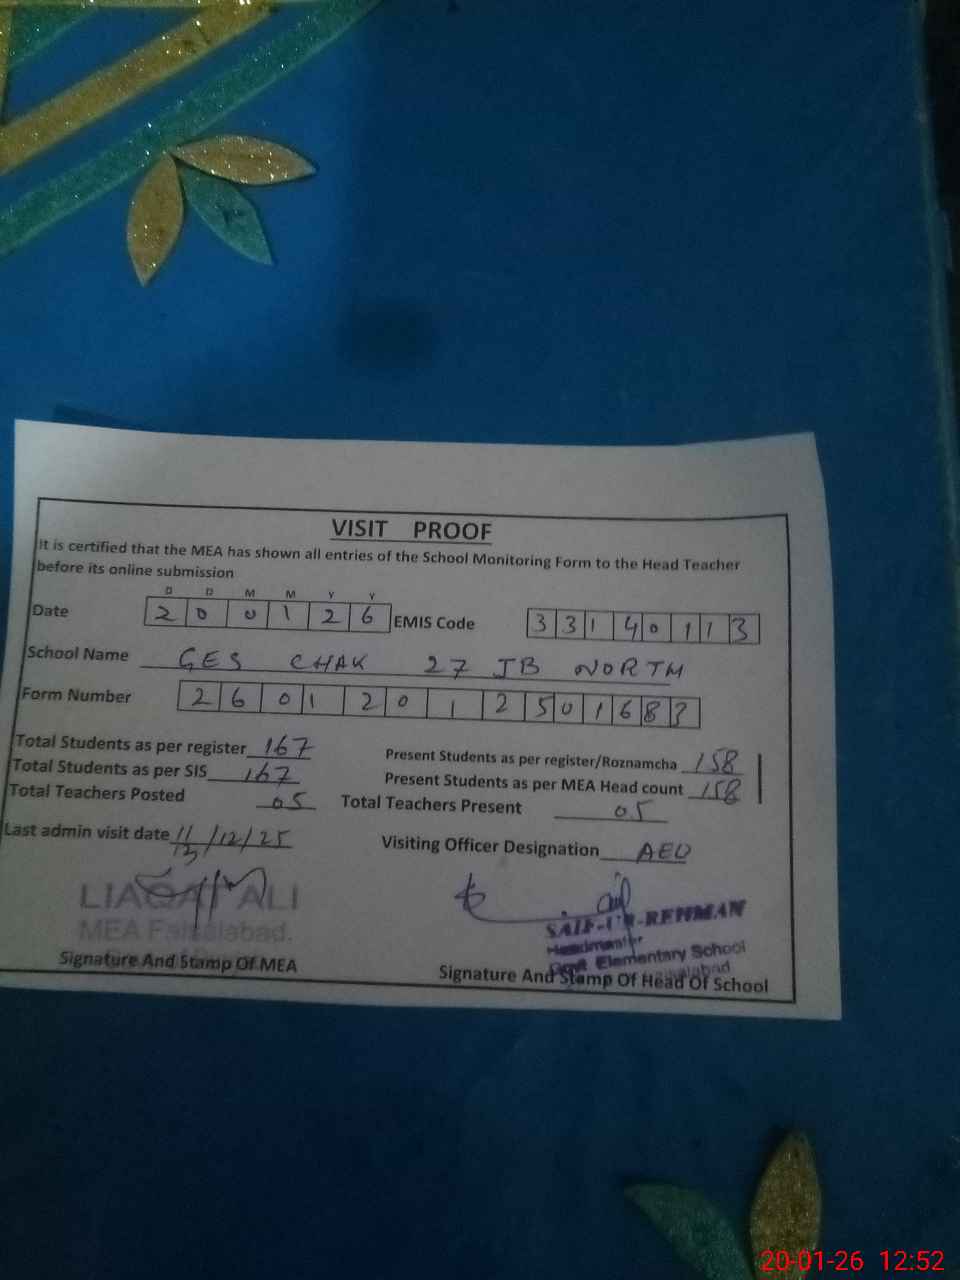 VISIT PROOF
It is certified that the MEA has shown all entries of the School Monitoring Form to the Head Teacher
before its online submission
D D M M Y Y
Date 2 0 0 1 2 6 EMIS Code 3 3 1 4 0 1 1 3
School Name GES CHAK 27 JB NORTH
Form Number 2 6 0 1 2 0 1 2 5 0 1 6 8 3
Total Students as per register 167 Present Students as per register/Roznamcha 158
Total Students as per SIS 167 Present Students as per MEA Head count 158
Total Teachers Posted 05 Total Teachers Present 05
Last admin visit date /12/25 Visiting Officer Designation AEO
LIAQAT ALI
MEA Faisalabad.
SAIF-UR-REHMAN
Headmaster
Govt Elementary School
Faisalabad
Signature And Stamp Of MEA Signature And Stamp Of Head Of School
20-01-26 12:52